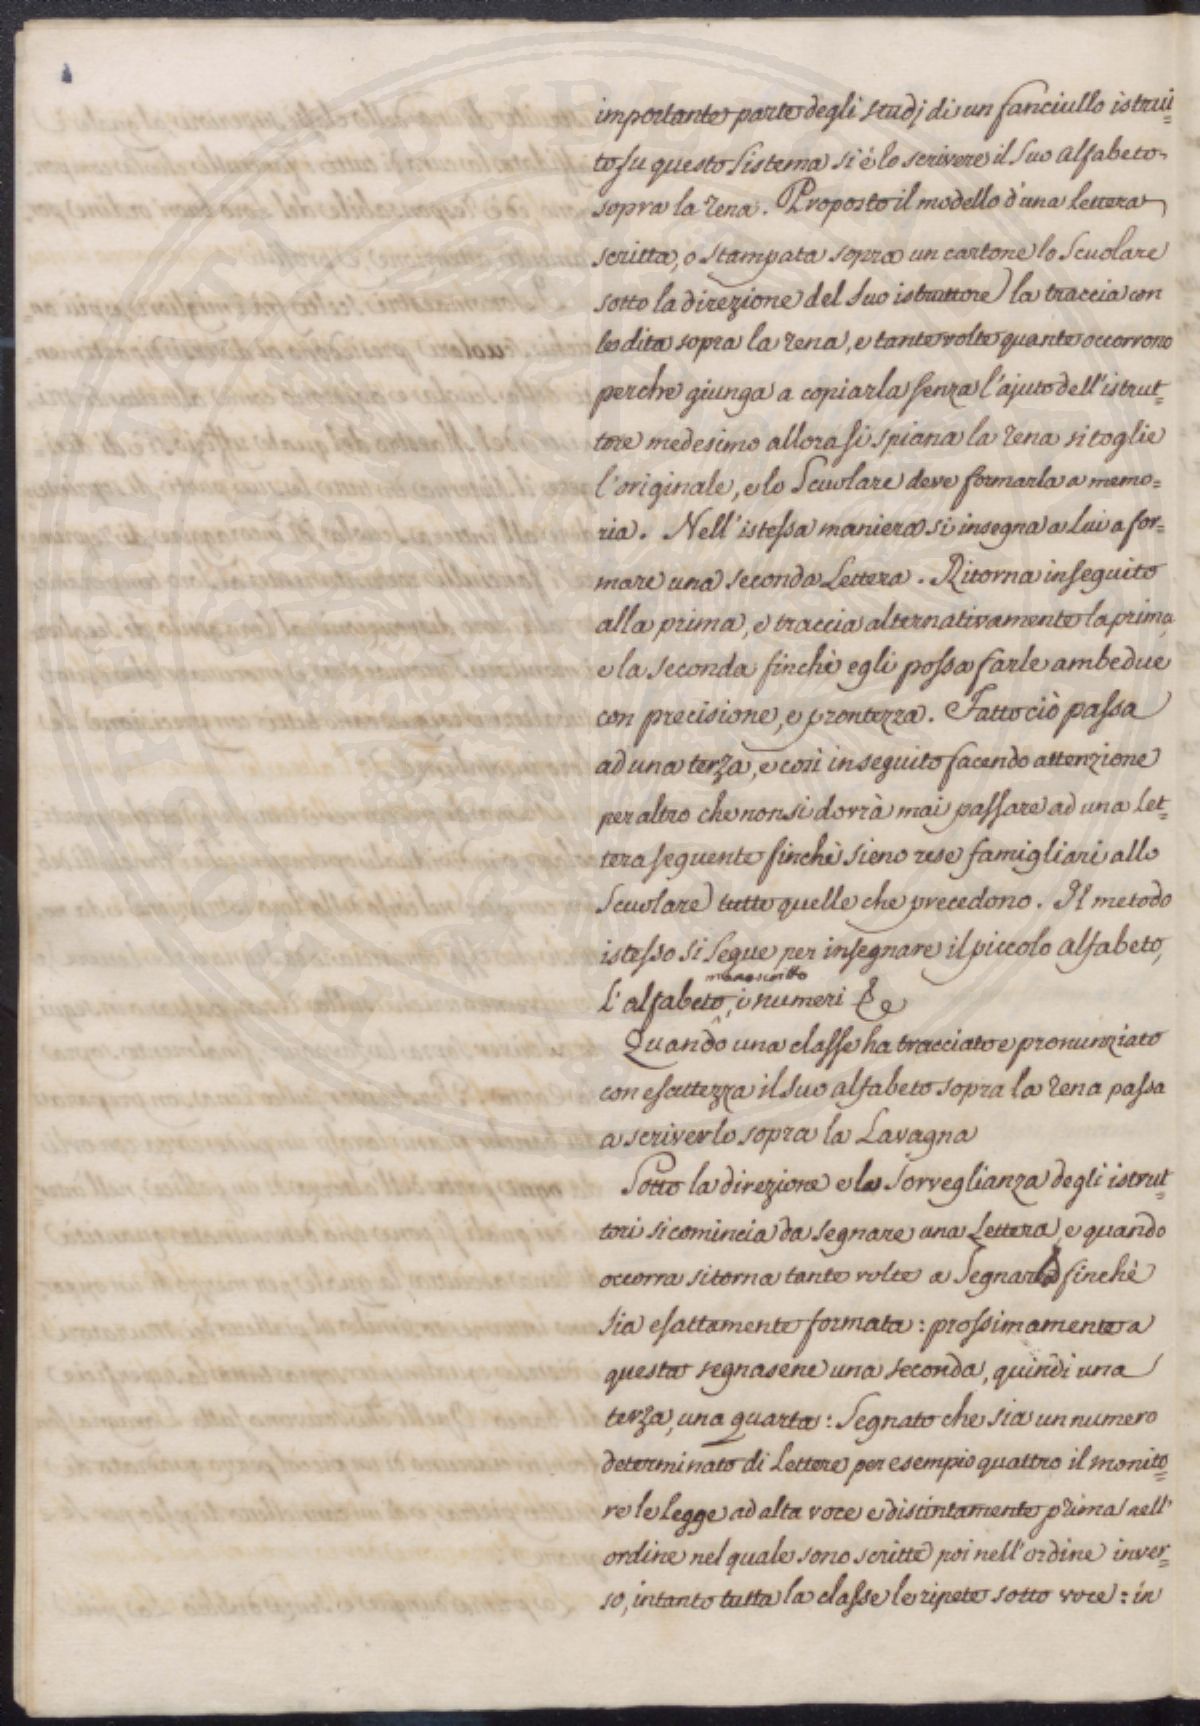 importante parte degli studj di un fanciullo istrui=
to su questo Sistema si è lo scrivere il Suo alfabeto
sopra la rena. Proposto il modello d'una lettera
scritta, o stampata sopra un cartone lo Scuolare
sotto la direzione del Suo istruttore la traccia con
le dita sopra la rena, e tante volte quante occorrono
perche giunga a copiarla senza l'ajuto dell'istrut=
tore medesimo allora si spiana la rena si toglie
l'originale, e lo Scuolare deve formarla a memo=
ria. Nell'istessa maniera si insegna a lui a for=
mare una seconda Lettera. Ritorna inseguito
alla prima, e traccia alternativamente la prima,
e la seconda finchè egli possa farle ambedue
con precisione, e prontezza. Fatto ciò passa
ad una terza, e così inseguito facendo attenzione
per altro che non si dovrà mai passare ad una let=
tera seguente finchè sieno rese famigliari allo
Scuolare tutte quelle che precedono. Il metodo
istesso si segue per insegnare il piccolo alfabeto,
manoscritto
L'alfabeto, i numeri &c
Quando una classe ha tracciato e pronunziato
con esattezza il Suo alfabeto sopra la rena passa
a scriverlo sopra la Lavagna
Sotto la direzione e la Sorveglianza degli istrut=
tori si comincia da segnare una Lettera, e quando
occorra si torna tante volte a Segnarla finchè
sia esattamente formata: prossimamente a
questa segnasene una seconda, quindi una
terza, una quarta: Segnato che sia un numero
determinato di Lettere per esempio quattro il monito=
re le legge ad alta voce e distintamente prima nell'
ordine nel quale sono scritte poi nell'ordine inver=
so, intanto tutta la classe le ripete sotto voce: in